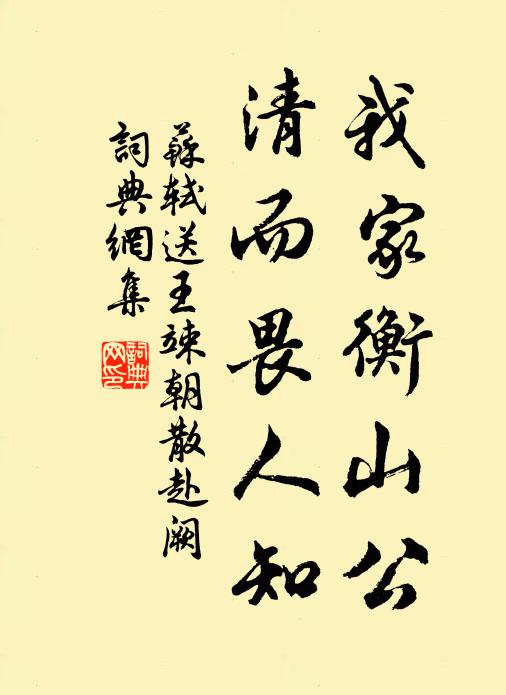 我家衡山公
清而畏人知
蘇軾送王竦朝散赴闕
詞典網集
詞典网印